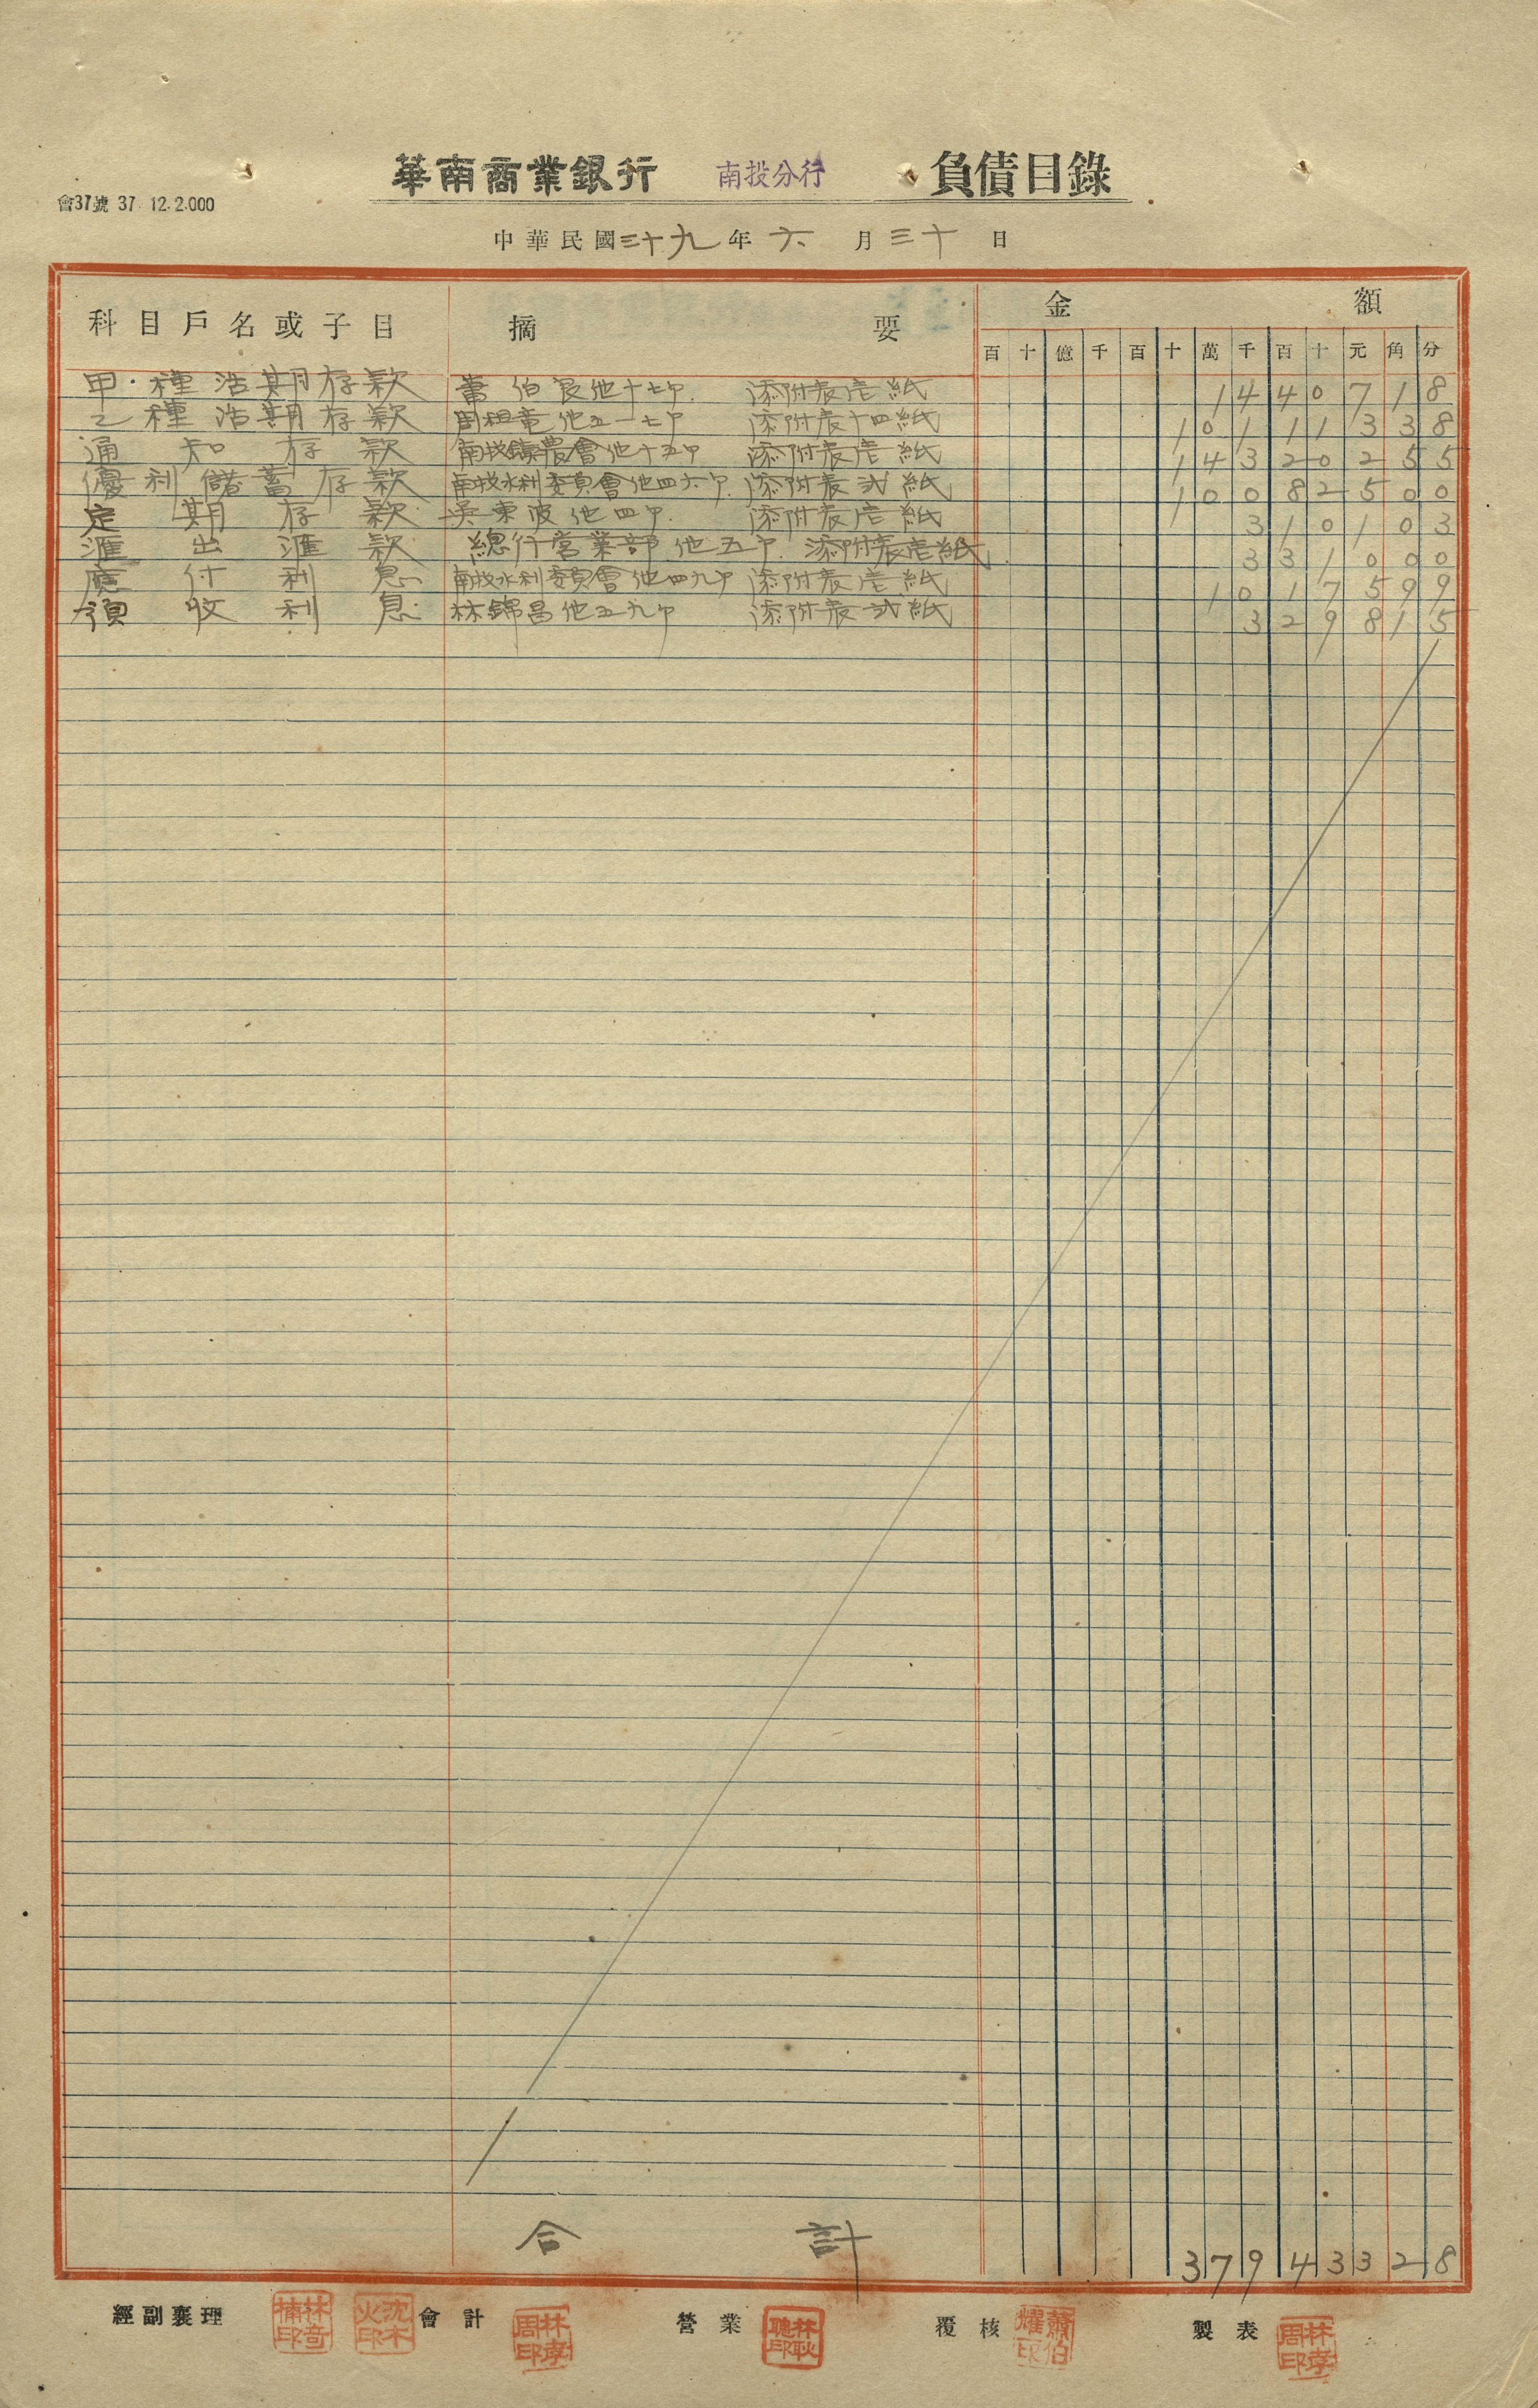 華南商業銀行 南投分行 負債目錄
會37號 37. 12. 2.000
中華民國三十九年六月三十日
科目戶名或子目 摘要 金額
百十億千百十萬千百十元角分
甲種活期存款 蕭伯良他十七戶 添附表壱紙 1440718
乙種活期存款 周祖竜他五一七戶 添附表十四紙 10111338
通知存款 南投鎮農會他十五戶 添附表壱紙 14320255
優利儲蓄存款 南投水利委員會他四六戶 添附表弍紙 10082500
定期存款 吳東波他四戶 添附表壱紙 310103
滙出滙款 總行営業部他五戶 添附表壱紙 331000
應付利息 南投水利委員會他四九戶 添附表壱紙 1017599
預收利息 林錦昌他五九戶 添附表弍紙 329815
合計 37943328
經副襄理 林奇楠印 沈木火印 會計 林孝周印 營業 林耿聰印 覆核 蕭伯耀印 製表 林孝周印